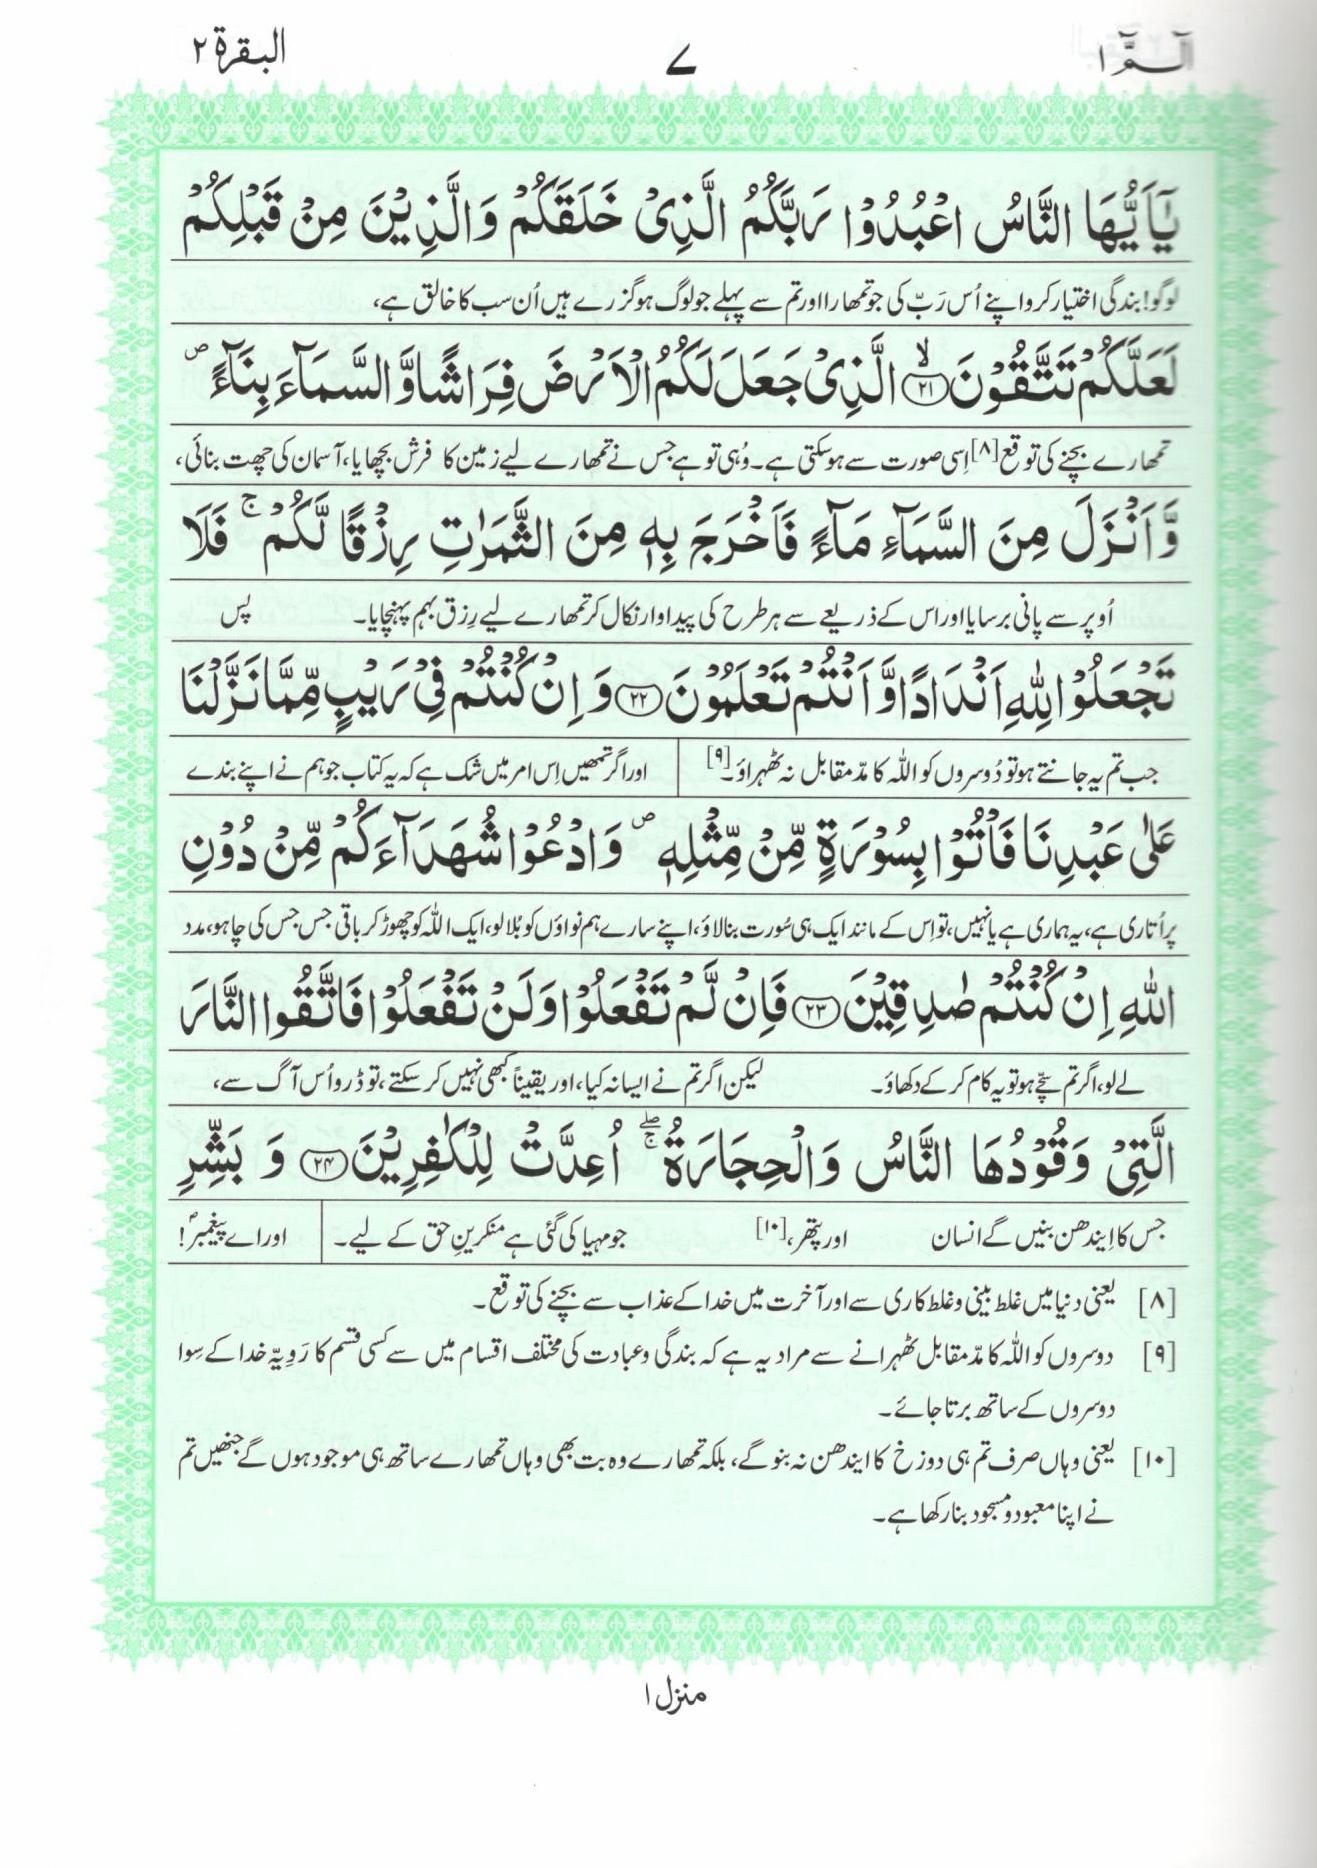 الٓمّٓ ۱
۷
البقرة ۲
يٰۤاَيُّهَا النَّاسُ اعْبُدُوْا رَبَّكُمُ الَّذِىْ خَلَقَكُمْ وَالَّذِيْنَ مِنْ قَبْلِكُمْ
لوگو! بندگی اختیار کرو اپنے اُس رَبّ کی جو تمھارا اور تم سے پہلے جو لوگ ہو گزرے ہیں اُن سب کا خالق ہے،
لَعَلَّكُمْ تَتَّقُوْنَ ۙ‏﴿۲۱﴾ الَّذِىْ جَعَلَ لَكُمُ الْاَرْضَ فِرَاشًا وَّالسَّمَآءَ بِنَآءً ۖ
تمھارے بچنے کی توقع [۸] اِسی صورت سے ہو سکتی ہے۔ وُہی تو ہے جس نے تمھارے لیے زمین کا فرش بچھایا، آسمان کی چھت بنائی،
وَّاَنْزَلَ مِنَ السَّمَآءِ مَآءً فَاَخْرَجَ بِهٖ مِنَ الثَّمَرٰتِ رِزْقًا لَّكُمْ ۚ فَلَا
اُوپر سے پانی برسایا اور اس کے ذریعے سے ہر طرح کی پیداوار نکال کر تمھارے لیے رِزق بہم پہنچایا۔ پس
تَجْعَلُوْا لِلّٰهِ اَنْدَادًا وَّاَنْتُمْ تَعْلَمُوْنَ ﴿۲۲﴾ وَاِنْ كُنْتُمْ فِىْ رَيْبٍ مِّمَّا نَزَّلْنَا
جب تم یہ جانتے ہو تو دُوسروں کو اللہ کا مدِّ مقابل نہ ٹھہراؤ۔[۹] اور اگر تمھیں اِس امر میں شک ہے کہ یہ کتاب جو ہم نے اپنے بندے
عَلٰى عَبْدِنَا فَاْتُوْا بِسُوْرَةٍ مِّنْ مِّثْلِهٖ ۖ وَادْعُوْا شُهَدَآءَكُمْ مِّنْ دُوْنِ
پر اُتاری ہے، یہ ہماری ہے یا نہیں، تو اِس کے مانند ایک ہی سُورت بنا لاؤ، اپنے سارے ہم نواؤں کو بُلا لو، ایک اللہ کو چھوڑ کر باقی جس جس کی چاہو، مدد
اللّٰهِ اِنْ كُنْتُمْ صٰدِقِيْنَ ﴿۲۳﴾ فَاِنْ لَّمْ تَفْعَلُوْا وَلَنْ تَفْعَلُوْا فَاتَّقُوا النَّارَ
لے لو، اگر تم سچّے ہو تو یہ کام کر کے دکھاؤ۔ لیکن اگر تم نے ایسا نہ کیا، اور یقیناً کبھی نہیں کر سکتے، تو ڈرو اُس آگ سے،
الَّتِىْ وَقُوْدُهَا النَّاسُ وَالْحِجَارَةُ ۖۚ اُعِدَّتْ لِلْكٰفِرِيْنَ ﴿۲۴﴾ وَ بَشِّرِ
جس کا اِیندھن بنیں گے انسان اور پتھر،[۱۰] جو مہیا کی گئی ہے منکرینِ حق کے لیے۔ اور اے پیغمبرؐ!
[۸] یعنی دنیا میں غلط بینی و غلط کاری سے اور آخرت میں خدا کے عذاب سے بچنے کی توقع۔
[۹] دوسروں کو اللہ کا مدِّ مقابل ٹھہرانے سے مراد یہ ہے کہ بندگی و عبادت کی مختلف اقسام میں سے کسی قسم کا رَوِیّہ خدا کے سِوا
دوسروں کے ساتھ برتا جائے۔
[۱۰] یعنی وہاں صرف تم ہی دوزخ کا ایندھن نہ بنو گے، بلکہ تمھارے وہ بت بھی وہاں تمھارے ساتھ ہی موجود ہوں گے جنھیں تم
نے اپنا معبود و مسجود بنا رکھا ہے۔
منزل ۱